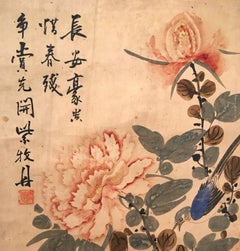 長安豪貴
惜春殘
爭賞先開紫牡丹